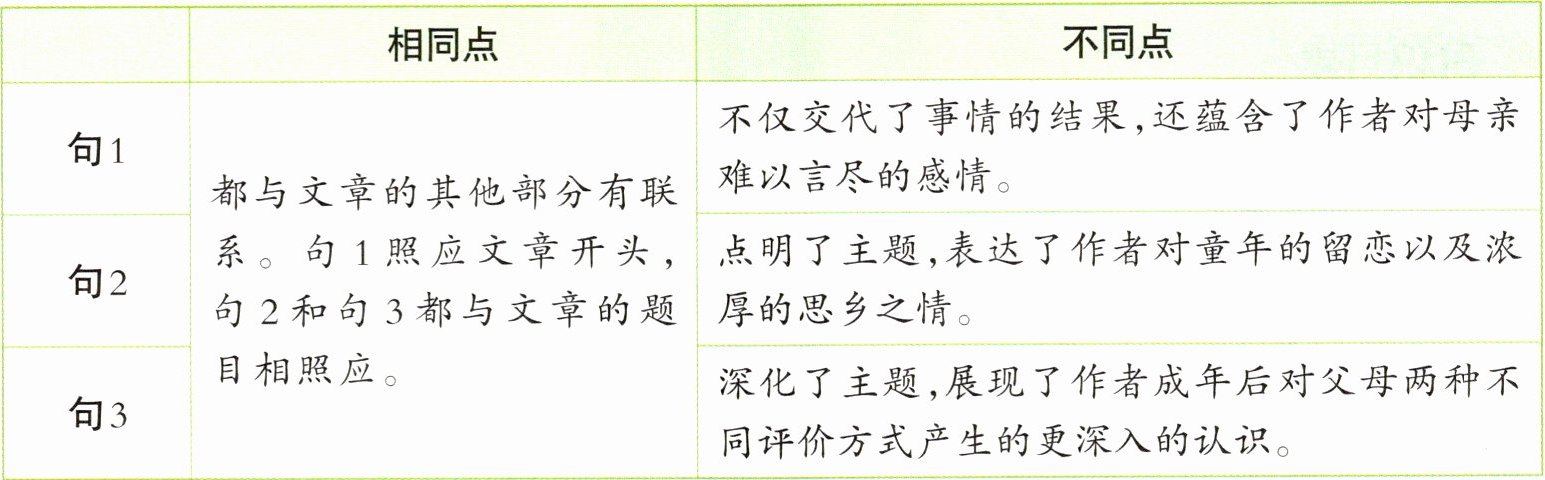 相同点
不同点
句1
都与文章的其他部分有联
系。句1照应文章开头，
句2和句3都与文章的题
目相照应。
不仅交代了事情的结果,还蕴含了作者对母亲
难以言尽的感情。
句2
点明了主题,表达了作者对童年的留恋以及浓
厚的思乡之情。
句3
深化了主题,展现了作者成年后对父母两种不
同评价方式产生的更深入的认识。